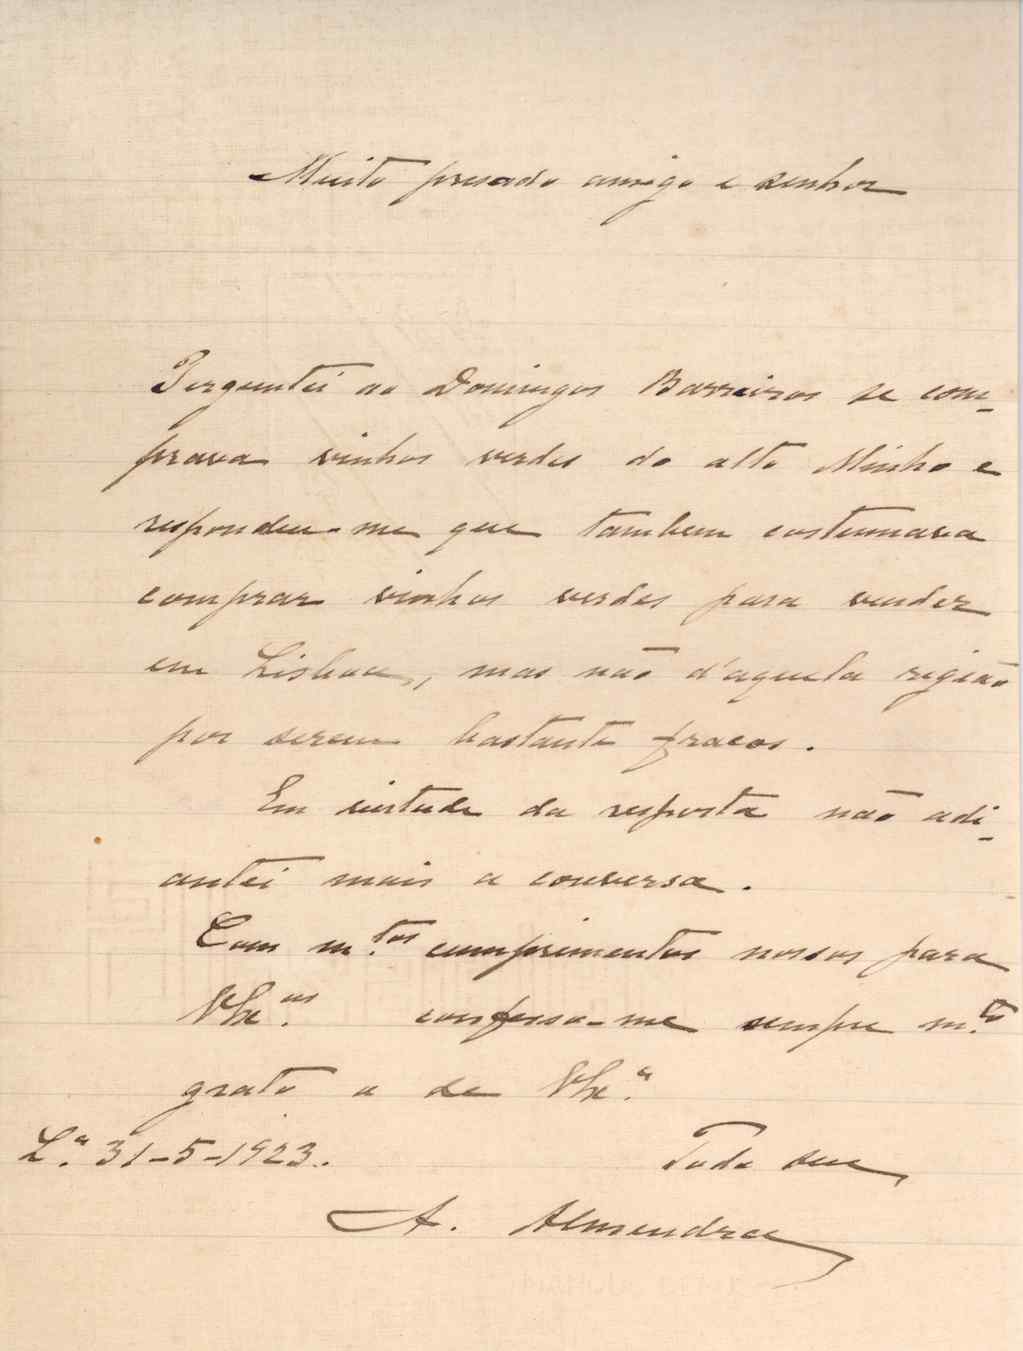 Muito presado amigo e senhor
Perguntei ao Domingos Barreiros se com-
prava vinhos verdes do alto Minho e
respondeu-me que tambem costumava
comprar vinhos verdes para vender
em Lisboa, mas não d'aquela região
por serem bastante fracos.
Em virtude da resposta não adi-
antei mais a conversa.
Com m.tos cumprimentos nossos para
VEx.as confesso-me sempre m.to
grato a de VEx.a
L.a 31-5-1923. Todo seu
A. Almendra